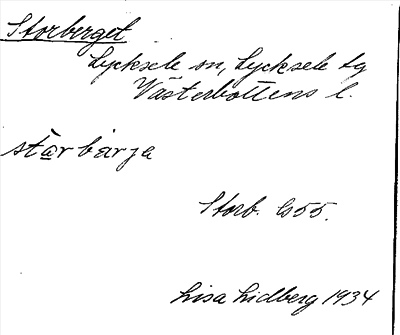 Storberget
Lycksele sn, Lycksele tg
Västerbottens l.
stàrbàrja
Storb. G55.
Lisa Lidberg 1934